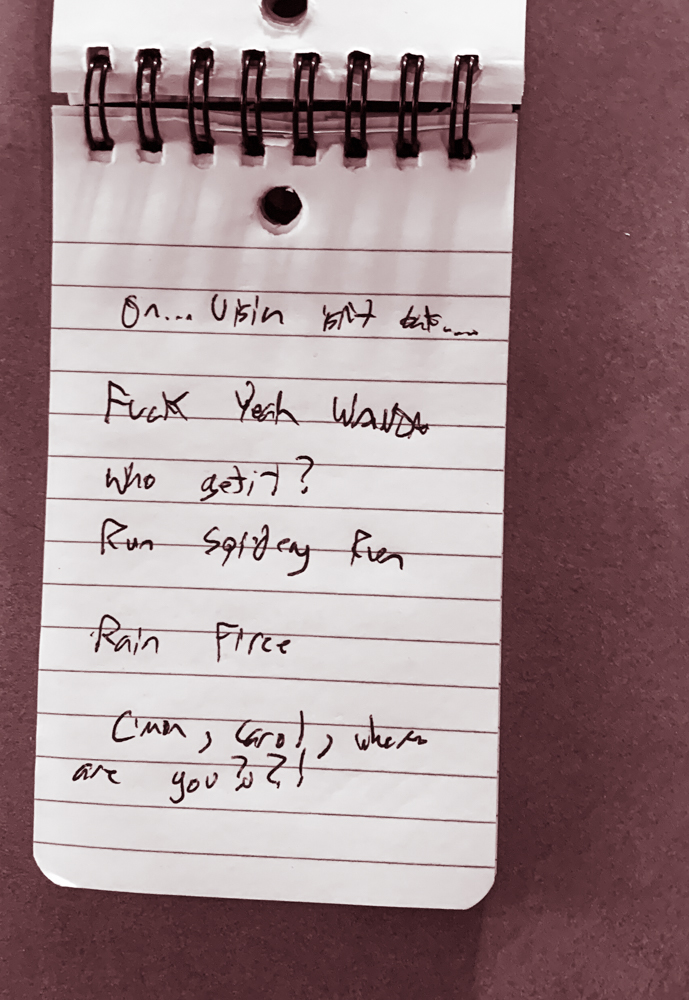 On... Visin isn't
Fuck Yeah WANDA
Who get it?
Run Spidey Run
Rain Firce
C'mon, Carol, where
are you??!